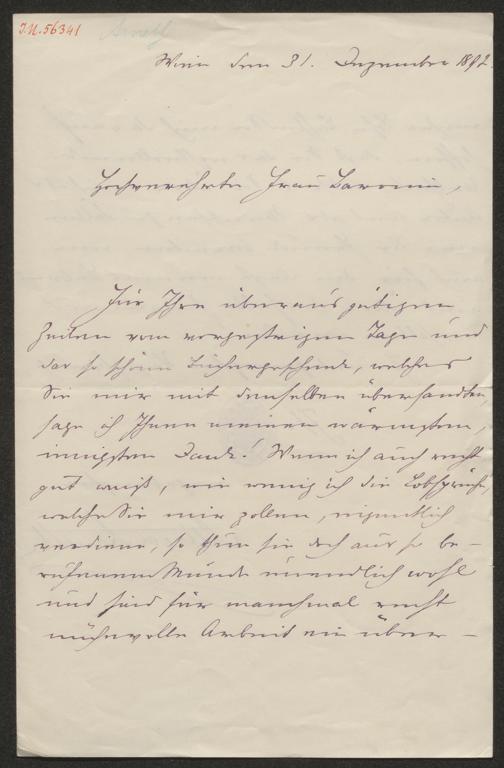 I.N. 56341
Arneth
Wien den 31. Dezember 1892.
Hochverehrte Frau Baronin,
Für Ihre überaus gütigen
Zeilen vom vorgestrigen Tage und
das so schöne Büchergeschenk, welches
Sie mir mit denselben übersandten,
sage ich Ihnen meinen wärmsten,
innigsten Dank! Wenn ich auch recht
gut weiß, wie wenig ich die Lobsprüche,
welche Sie mir zollen, eigentlich
verdiene, so thun sie doch aus so be-
rufenem Munde unendlich wohl
und sind für manchmal recht
mühevolle Arbeit ein über-